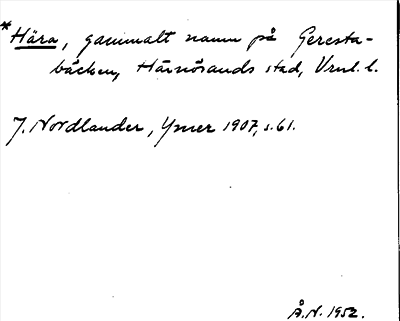 *Hära, gammalt namn på Geresta-
bäcken, Härnösands stad, Vrnl. l.
J. Nordlander, Ymer 1907, s. 61.
Å. N. 1952.